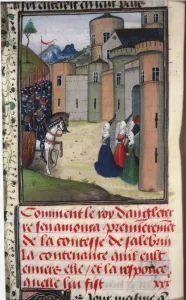 Comment le roy dangleter
re senamoura premierement
de la contesse de salebrin
la contenance quil eust
enuers elle / et la responce
quelle luy fist
jour mesme